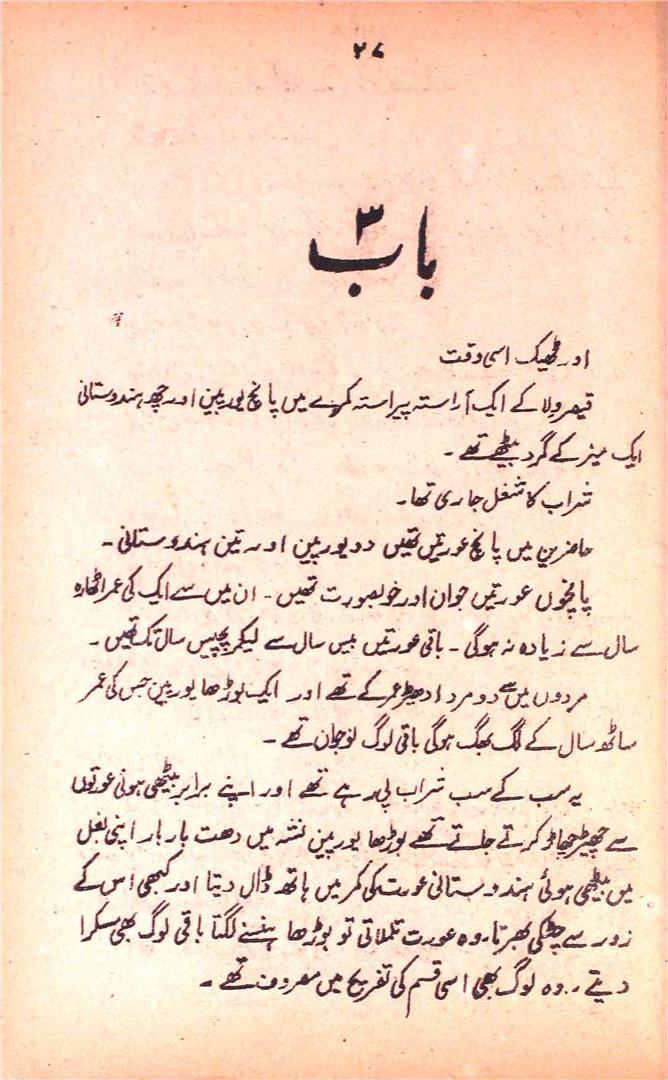 ۲۷
باب ۳
اور ٹھیک اسی وقت
قیصر ولا کے ایک آراستہ پیراستہ کمرے میں پانچ یورپین اور چھ ہندوستانی
ایک میز کے گرد بیٹھے تھے ۔
شراب کا شغل جاری تھا ۔
حاضرین میں پانچ عورتیں تھیں دو یورپین اور تین ہندوستانی ۔
پانچوں عورتیں جوان اور خوبصورت تھیں ۔ ان میں سے ایک کی عمر اٹھارہ
سال سے زیادہ نہ ہوگی ۔ باقی عورتیں بیس سال سے لیکر پچیس سال تک تھیں ۔
مردوں میں سے دو مرد ادھیڑ عمر کے تھے اور ایک بوڑھا یورپین جس کی عمر
ساٹھ سال کے لگ بھگ ہوگی باقی لوگ نوجوان تھے ۔
یہ سب کے سب شراب پی رہے تھے اور اپنے برابر بیٹھی ہوئی عورتوں
سے چھیڑ چھاڑ کرتے جاتے تھے بوڑھا یورپین نشہ میں دھت بار بار اپنی بغل
میں بیٹھی ہوئی ہندوستانی عورت کی کمر میں ہاتھ ڈال دیتا اور کبھی اس کے
زور سے چٹکی بھرتا ۔ وہ عورت تلملاتی تو بوڑھا ہنسنے لگتا باقی لوگ بھی مسکرا
دیتے ۔ وہ لوگ بھی اسی قسم کی تفریح میں مصروف تھے ۔